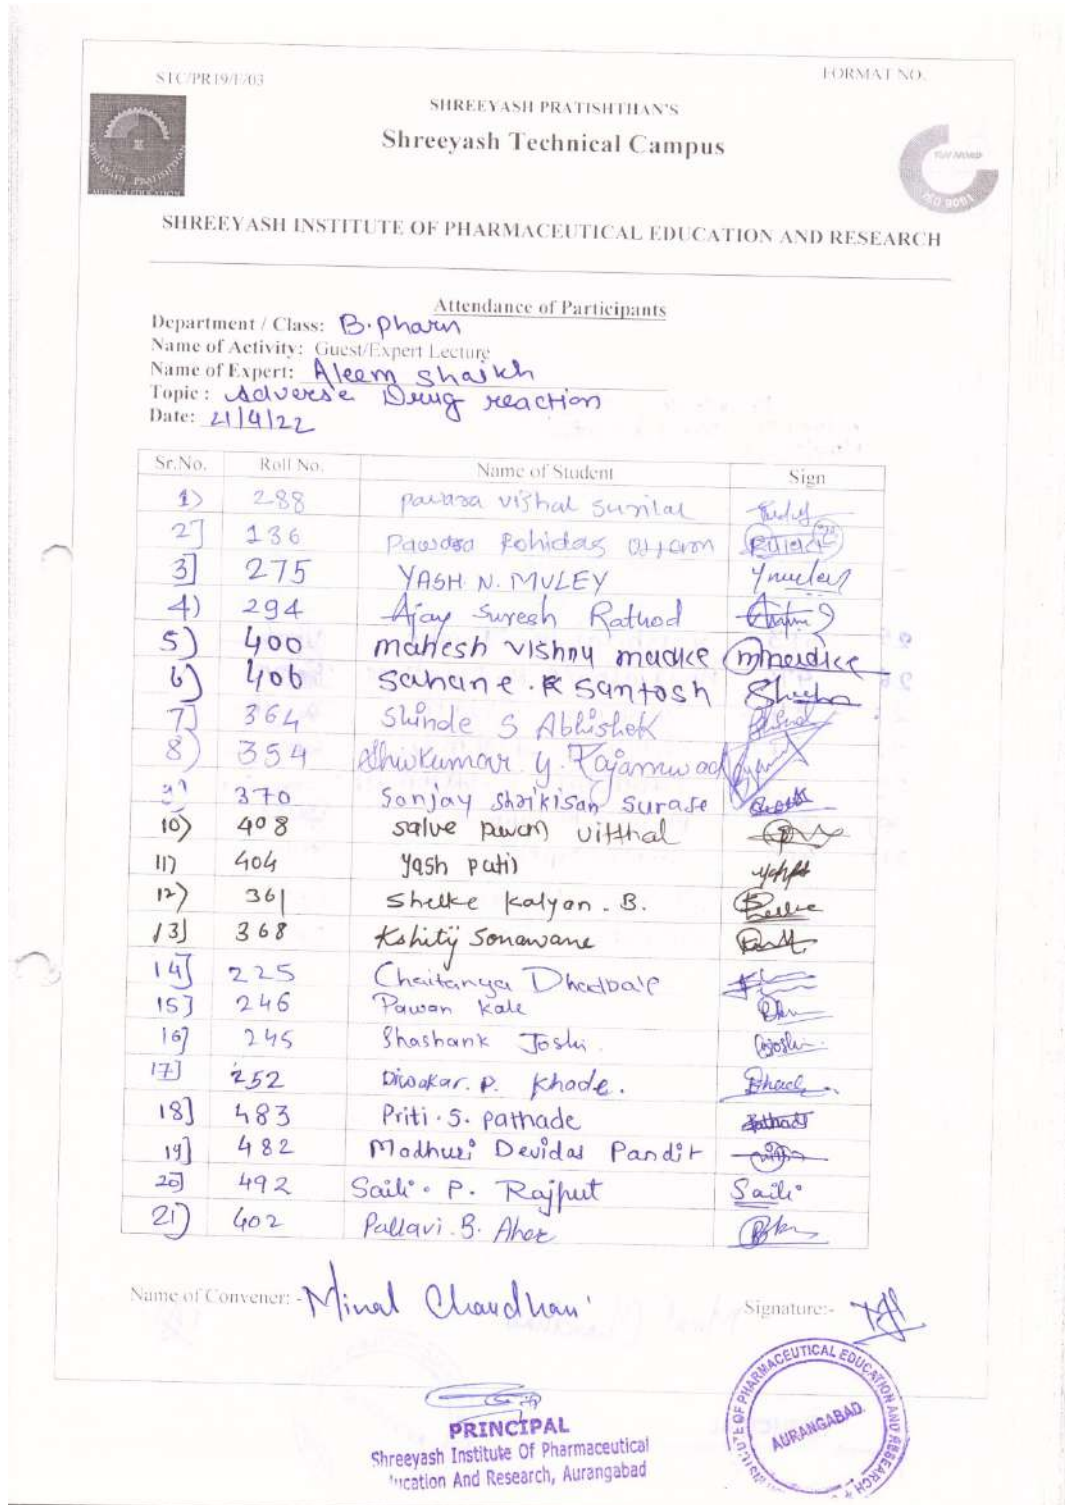 STC/PR19/F/03
FORMAT NO.
SHREEYASH PRATISHTHAN'S
Shreeyash Technical Campus
SHREEYASH PRATISHTHAN
TUV NORD
ISO 9001
SHREEYASH INSTITUTE OF PHARMACEUTICAL EDUCATION AND RESEARCH
Attendance of Participants
Department / Class: B.pharm
Name of Activity: Guest/Expert Lecture
Name of Expert: Aleem Shaikh
Topic : Adverse Drug reaction
Date: 21/4/22
Sr.No. Roll No. Name of Student Sign
1) 288 pawara vishal sunilal
2] 136 Pawara Rohidas
3] 275 YASH N. MULEY
4) 294 Ajay Suresh Rathod
5) 400 mahesh vishnu madke
6) 406 Sahane . R Santosh
7] 364 Shinde S Abhishek
8) 354 Shivkumar y.
9) 370 Sanjay Shrikisan Surase
10) 408 salve pavan vitthal
11) 404 yash patil
12) 361 Shelke Kalyan . B.
13] 368 Kshitij Sonawane
14] 225 Chaitanya
15] 246 Pawan Kale
16] 245 Shashank Joshi . Gjoshi
17] 252 Diwakar. P. Khade.
18] 483 Priti . S. pathade
19] 482 Madhuri Devidas Pandit
20] 492 Saili . P. Rajput Saili
21) 402 Pallavi . B. Aher
Name of Convener: - Minal Chaudhari
Signature:-
PRINCIPAL
Shreeyash Institute Of Pharmaceutical
ucation And Research, Aurangabad
OF PHARMACEUTICAL EDUCATION AND RESEARCH
AURANGABAD.